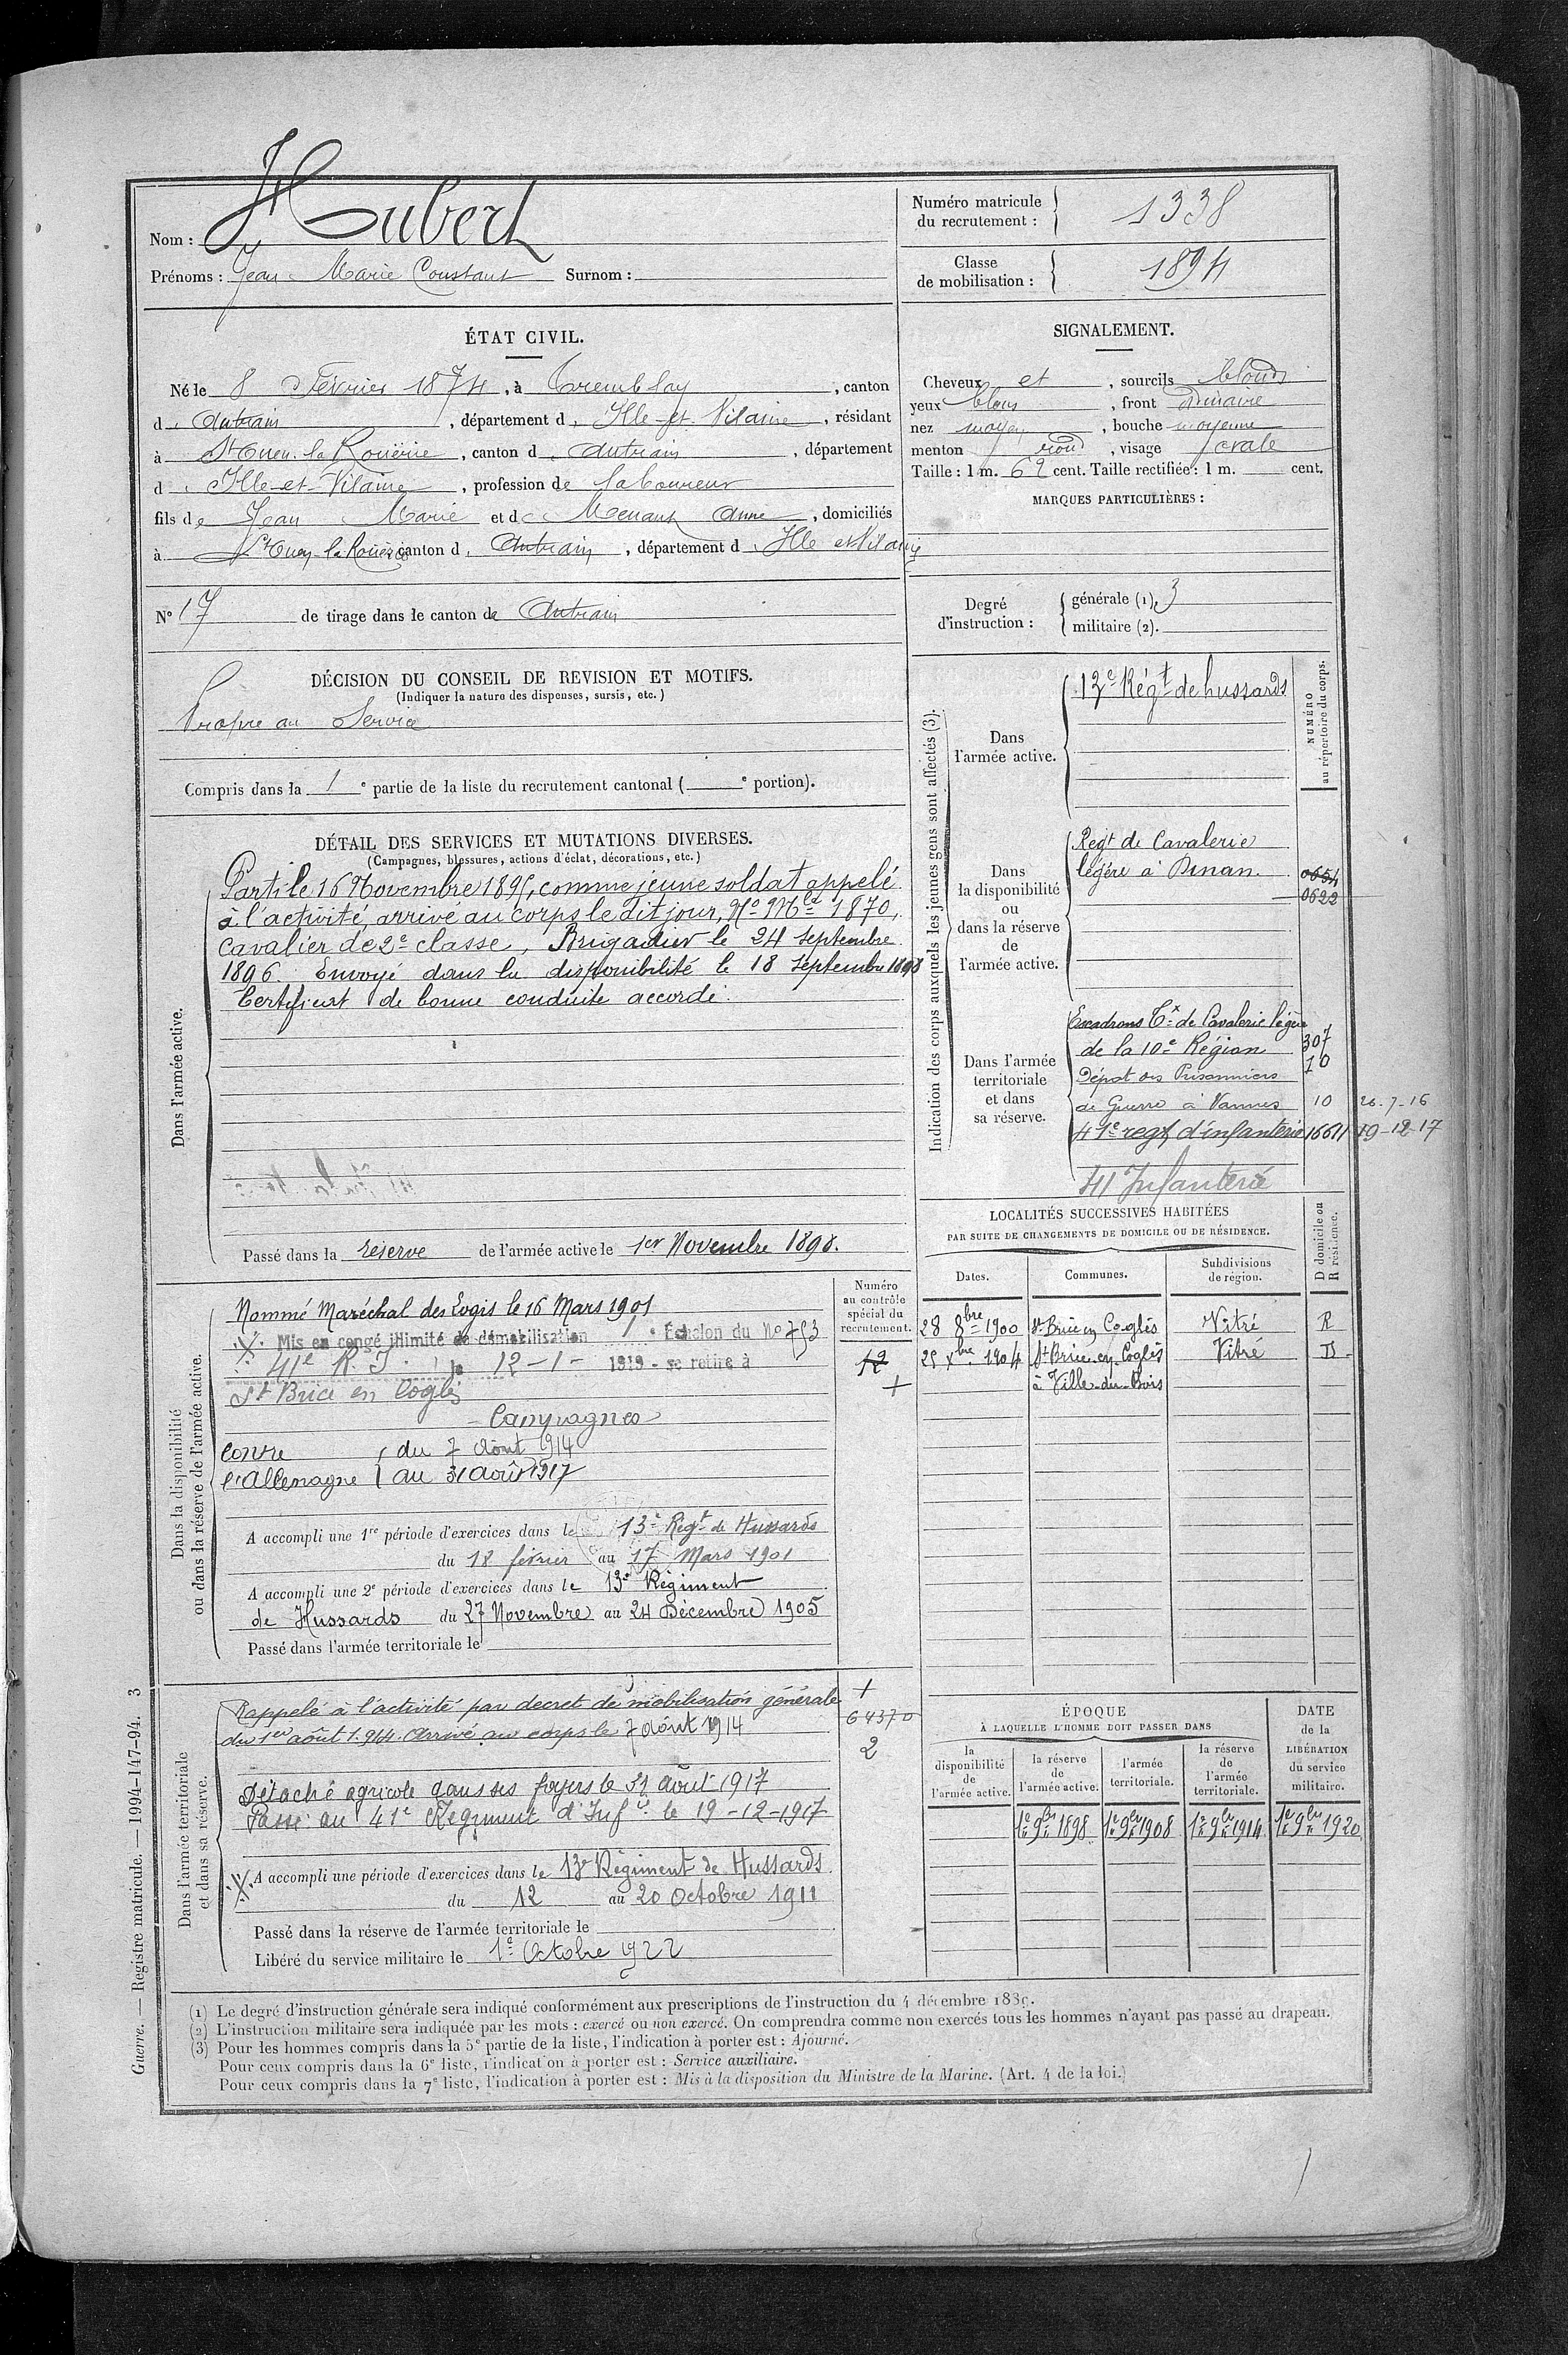 Nom : Hubert
Prénoms : Jean Marie Constant Surnom :
Numéro matricule du recrutement : 1338
Classe de mobilisation : 1894
ÉTAT CIVIL.
Né le 8 Février 1874, à Tremblay, canton
d'Antrain, département d'Ille-et-Vilaine, résidant
à St Ouen-la-Rouërie, canton d'Antrain, département
d'Ille-et-Vilaine, profession de laboureur
fils de Jean Marie et de Menant Anne, domiciliés
à St Ouen-la-Rouërie canton d'Antrain, département d'Ille et Vilaine
No 17 de tirage dans le canton de Antrain
SIGNALEMENT.
Cheveux et, sourcils blonds
yeux bleus, front ordinaire
nez moyen, bouche moyenne
menton rond, visage ovale
Taille : 1 m. 62 cent. Taille rectifiée : 1 m. cent.
MARQUES PARTICULIÈRES :
Degré d'instruction : générale (1). 3
militaire (2).
DÉCISION DU CONSEIL DE REVISION ET MOTIFS.
(Indiquer la nature des dispenses, sursis, etc.)
Propre au Service
Compris dans la 1e partie de la liste du recrutement cantonal ( e portion).
DÉTAIL DES SERVICES ET MUTATIONS DIVERSES.
(Campagnes, blessures, actions d'éclat, décorations, etc.)
Dans l'armée active.
Parti le 16 Novembre 1895, comme jeune soldat appelé
à l'activité, arrivé au corps le dit jour, No Mle 1870,
cavalier de 2e classe, Brigadier le 24 septembre
1896. Envoyé dans la disponibilité le 18 septembre 1898
Certificat de bonne conduite accordé.
Passé dans la réserve de l'armée active le 1er Novembre 1898.
Indication des corps auxquels les jeunes gens sont affectés (3).
NUMÉRO au répertoire du corps.
Dans l'armée active.
12e Régt de hussards
Dans la disponibilité ou dans la réserve de l'armée active.
Regt de Cavalerie
légère à Dinan. 0654
0622
Dans l'armée territoriale et dans sa réserve.
Escadrons Tx de Cavalerie légère
de la 10e Région 307
10
Dépôt des Prisonniers
de Guerre à Vannes 10 26-7-16
41e regt d'infanterie 16611 19-12-17
41 Infanterie
LOCALITÉS SUCCESSIVES HABITÉES
PAR SUITE DE CHANGEMENTS DE DOMICILE OU DE RÉSIDENCE.
Dates. Communes. Subdivisions de région. D domicile ou R résidence.
28 8bre 1900 St Brice en Coglès Vitré R
25 Xbre 1904 St Brice-en-Coglès Vitré D
à Ville-du-Bois
Dans la disponibilité ou dans la réserve de l'armée active.
Numéro au contrôle spécial du recrutement.
Nommé Maréchal des Logis le 16 Mars 1901
Mis en congé illimité de démobilisation Échelon du No 753
41e R. I. le 12-1-1919 - se retire à
St Brice en Coglès
12
+
Campagnes
Contre l'Allemagne du 7 Août 1914
au 31 Août 1917
A accompli une 1re période d'exercices dans le 13e Régt de Hussards
du 18 février au 17 Mars 1901
A accompli une 2e période d'exercices dans le 13e Régiment
de Hussards du 27 Novembre au 24 Décembre 1905
Passé dans l'armée territoriale le
Dans l'armée territoriale et dans sa réserve.
Rappelé à l'activité par decret de mobilisation générale
du 1er août 1914. Arrivé au corps le 7 Août 1914
+
64370
2
Détaché agricole dans ses foyers le 31 Août 1917
Passé au 41e Régiment d'Infie le 19-12-1917
A accompli une période d'exercices dans le 13e Régiment de Hussards
du 12 au 20 Octobre 1911
Passé dans la réserve de l'armée territoriale le
Libéré du service militaire le 1e Octobre 1922
ÉPOQUE
À LAQUELLE L'HOMME DOIT PASSER DANS
la disponibilité de l'armée active. la réserve de l'armée active. l'armée territoriale. la réserve de l'armée territoriale. DATE de la LIBÉRATION du service militaire.
1er 9bre 1898 1er 9bre 1908 1er 9bre 1914 1er 9bre 1920
(1) Le degré d'instruction générale sera indiqué conformément aux prescriptions de l'instruction du 4 décembre 1889.
(2) L'instruction militaire sera indiquée par les mots : exercé ou non exercé. On comprendra comme non exercés tous les hommes n'ayant pas passé au drapeau.
(3) Pour les hommes compris dans la 5e partie de la liste, l'indication à porter est : Ajourné.
Pour ceux compris dans la 6e liste, l'indication à porter est : Service auxiliaire.
Pour ceux compris dans la 7e liste, l'indication à porter est : Mis à la disposition du Ministre de la Marine. (Art. 4 de la loi.)
Guerre. — Registre matricule. — 1994-147-94. 3